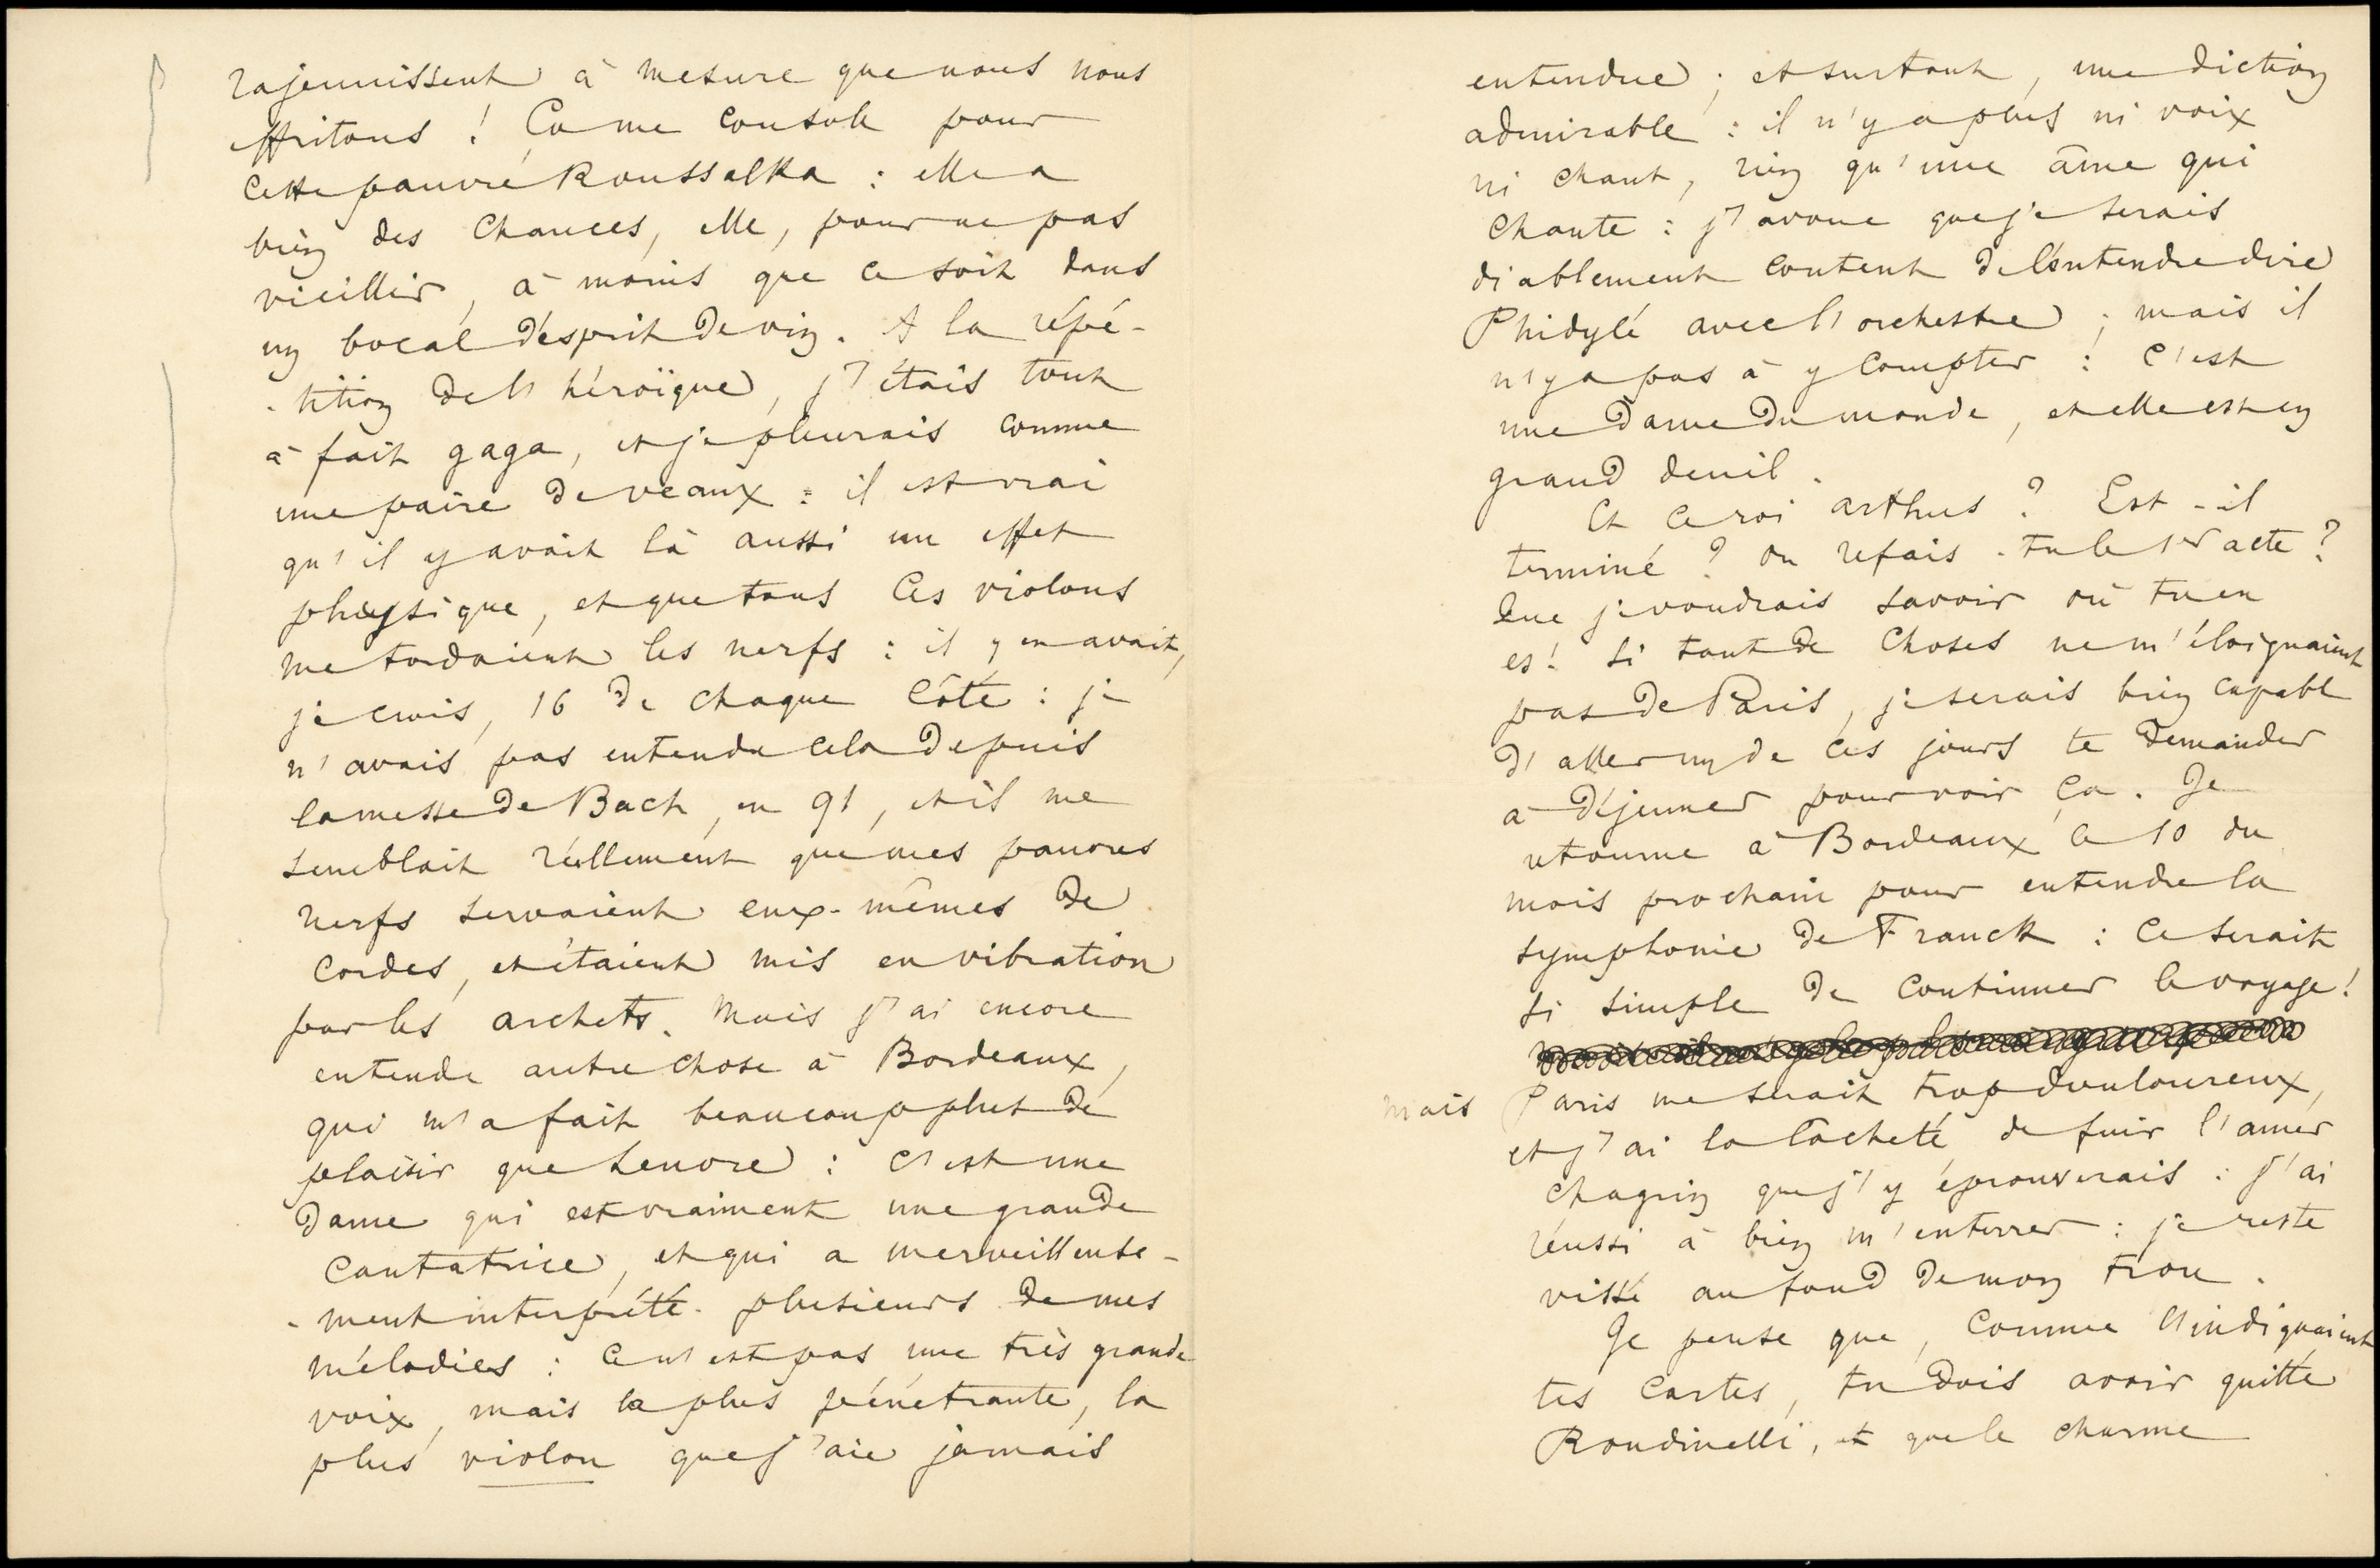 rajeunissent à mesure que nous nous
effritons ! Ça me console pour
cette pauvre Roussalka : elle a
bien des chances, elle, pour ne pas
vieillir, à moins que ce soit dans
un bocal d'esprit de vin. A la répé-
-tition de l'héroïque, j'étais tout
à fait gaga, et je pleurais comme
une paire de veaux : il est vrai
qu'il y avait là aussi un effet
physique, et que tous ces violons
me tordaient les nerfs : il y en avait,
je crois, 16 de chaque côté : je
n'avais pas entendu cela depuis
la messe de Bach, en 91, et il me
semblait réellement que mes pauvres
nerfs servaient eux-mêmes de
cordes, et étaient mis en vibration
par les archets. Mais j'ai encore
entendu autre chose à Bordeaux,
qui m'a fait beaucoup plus de
plaisir que Lenore : c'est une
Dame qui est vraiment une grande
cantatrice, et qui a merveilleuse-
-ment interprété plusieurs de mes
mélodies : ce n'est pas une très grande
voix, mais la plus pénétrante, la
plus violon que j'aie jamais
entendue ; et surtout, une diction
admirable : il n'y a plus ni voix
ni chant, rien qu'une âme qui
chante : j'avoue que je serais
diablement content de l'entendre dire
Phidylé avec l'orchestre ; mais il
n'y a pas à y compter : c'est
une Dame du monde, et elle est en
grand deuil.
Et ce roi Arthus ? Est-il
terminé ? ou refais-tu le 1er acte ?
Que je voudrais savoir où tu en
es ! Si tant de choses ne m'éloignaient
pas de Paris, je serais bien capable
d'aller un de ces jours te demander
à déjeuner pour voir ça. Je
retourne à Bordeaux le 10 du
mois prochain pour entendre la
symphonie de Franck : ce serait
si simple de continuer le voyage !
mais Paris me serait trop douloureux,
et j'ai la lâcheté de fuir l'amer
chagrin que j'y éprouverais : j'ai
réussi à bien m'enterrer : je reste
vissé au fond de mon trou.
Je pense que, comme l'indiquaient
tes cartes, tu dois avoir quitté
Rondinelli, et que le charme